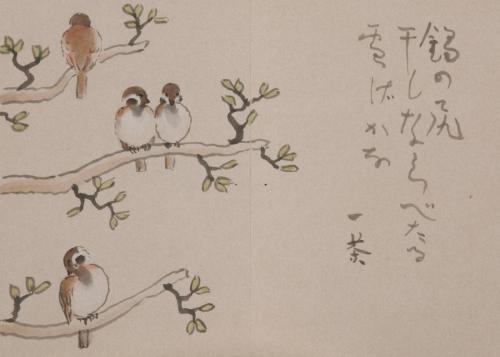 鍋の尻
干しならべたる
雪げかな
一茶